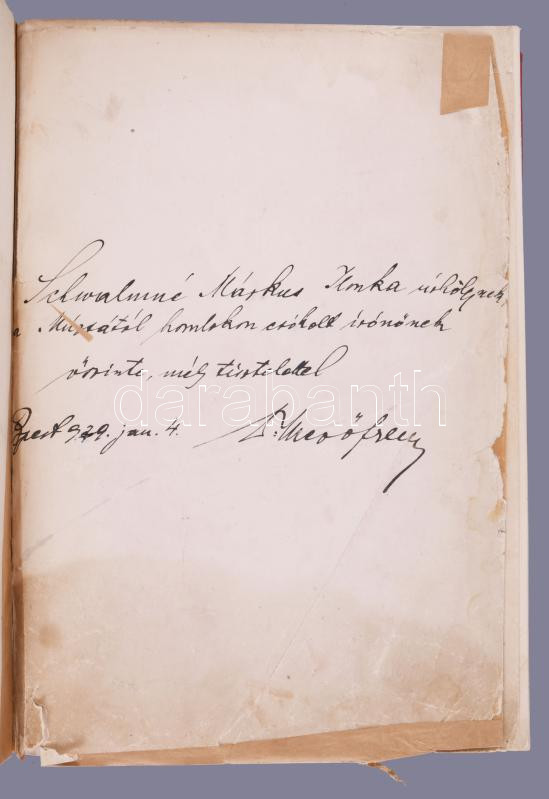 Schwalmné Márkus Ilonka úrhölgynek,
a Múzsától homlokon csókolt írónőnek
őszinte, mély tisztelettel
darabanth
Bpest 929. jan. 4. Dr.